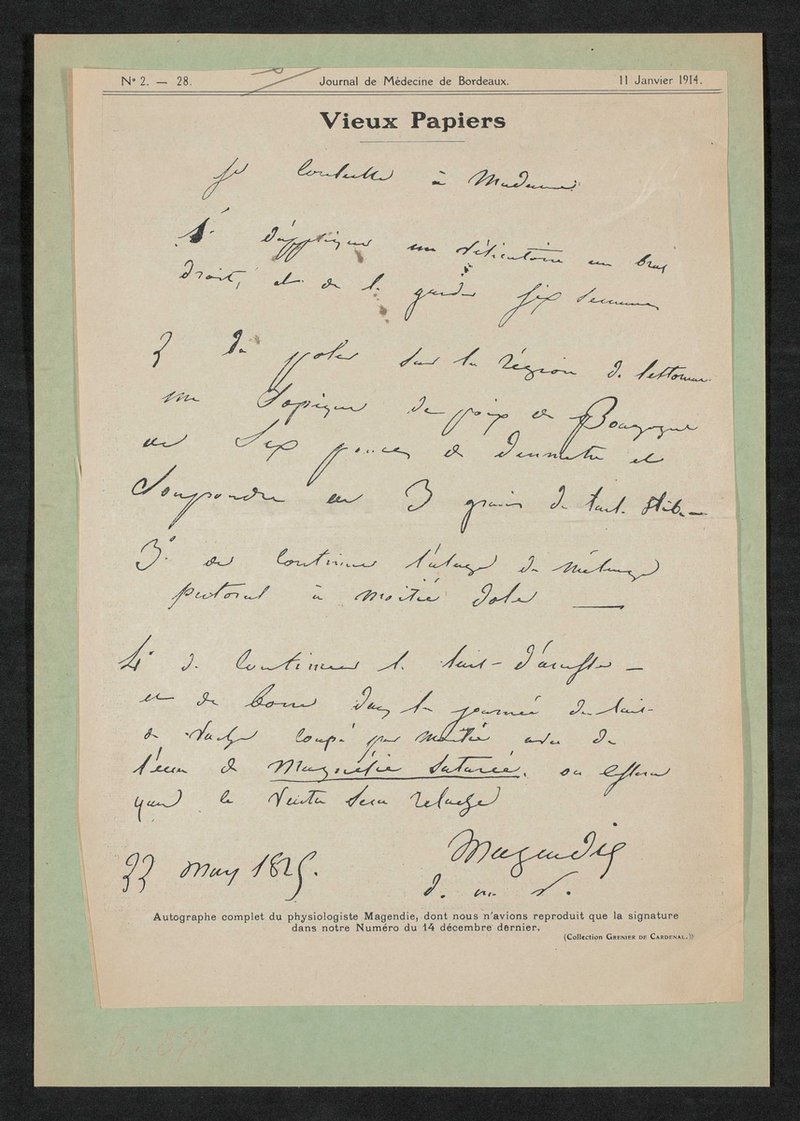 N° 2. — 28.
Journal de Médecine de Bordeaux.
11 Janvier 1914.
Vieux Papiers
Je conseille à Madame
1° d'appliquer un vésicatoire au bras
droit, et de le garder six semaines
2 de poser sur la région de l'estomac
un topique de poix de Bourgogne
de six pouces de diametre et
saupoudré de 3 grains de tart. stib.
3° de continuer l'usage du mélange
pectoral à moitié dose —
4° de continuer le lait d'ânesse —
et de boire dans la journée du lait
de vache coupé par moitié avec de
l'eau de Magnésie saturée. on cessera
quand le ventre sera relaché
22 may 1825.
Magendie
d. m. P.
Autographe complet du physiologiste Magendie, dont nous n'avions reproduit que la signature
dans notre Numéro du 14 décembre dernier.
(Collection Grenier de Cardenal.)